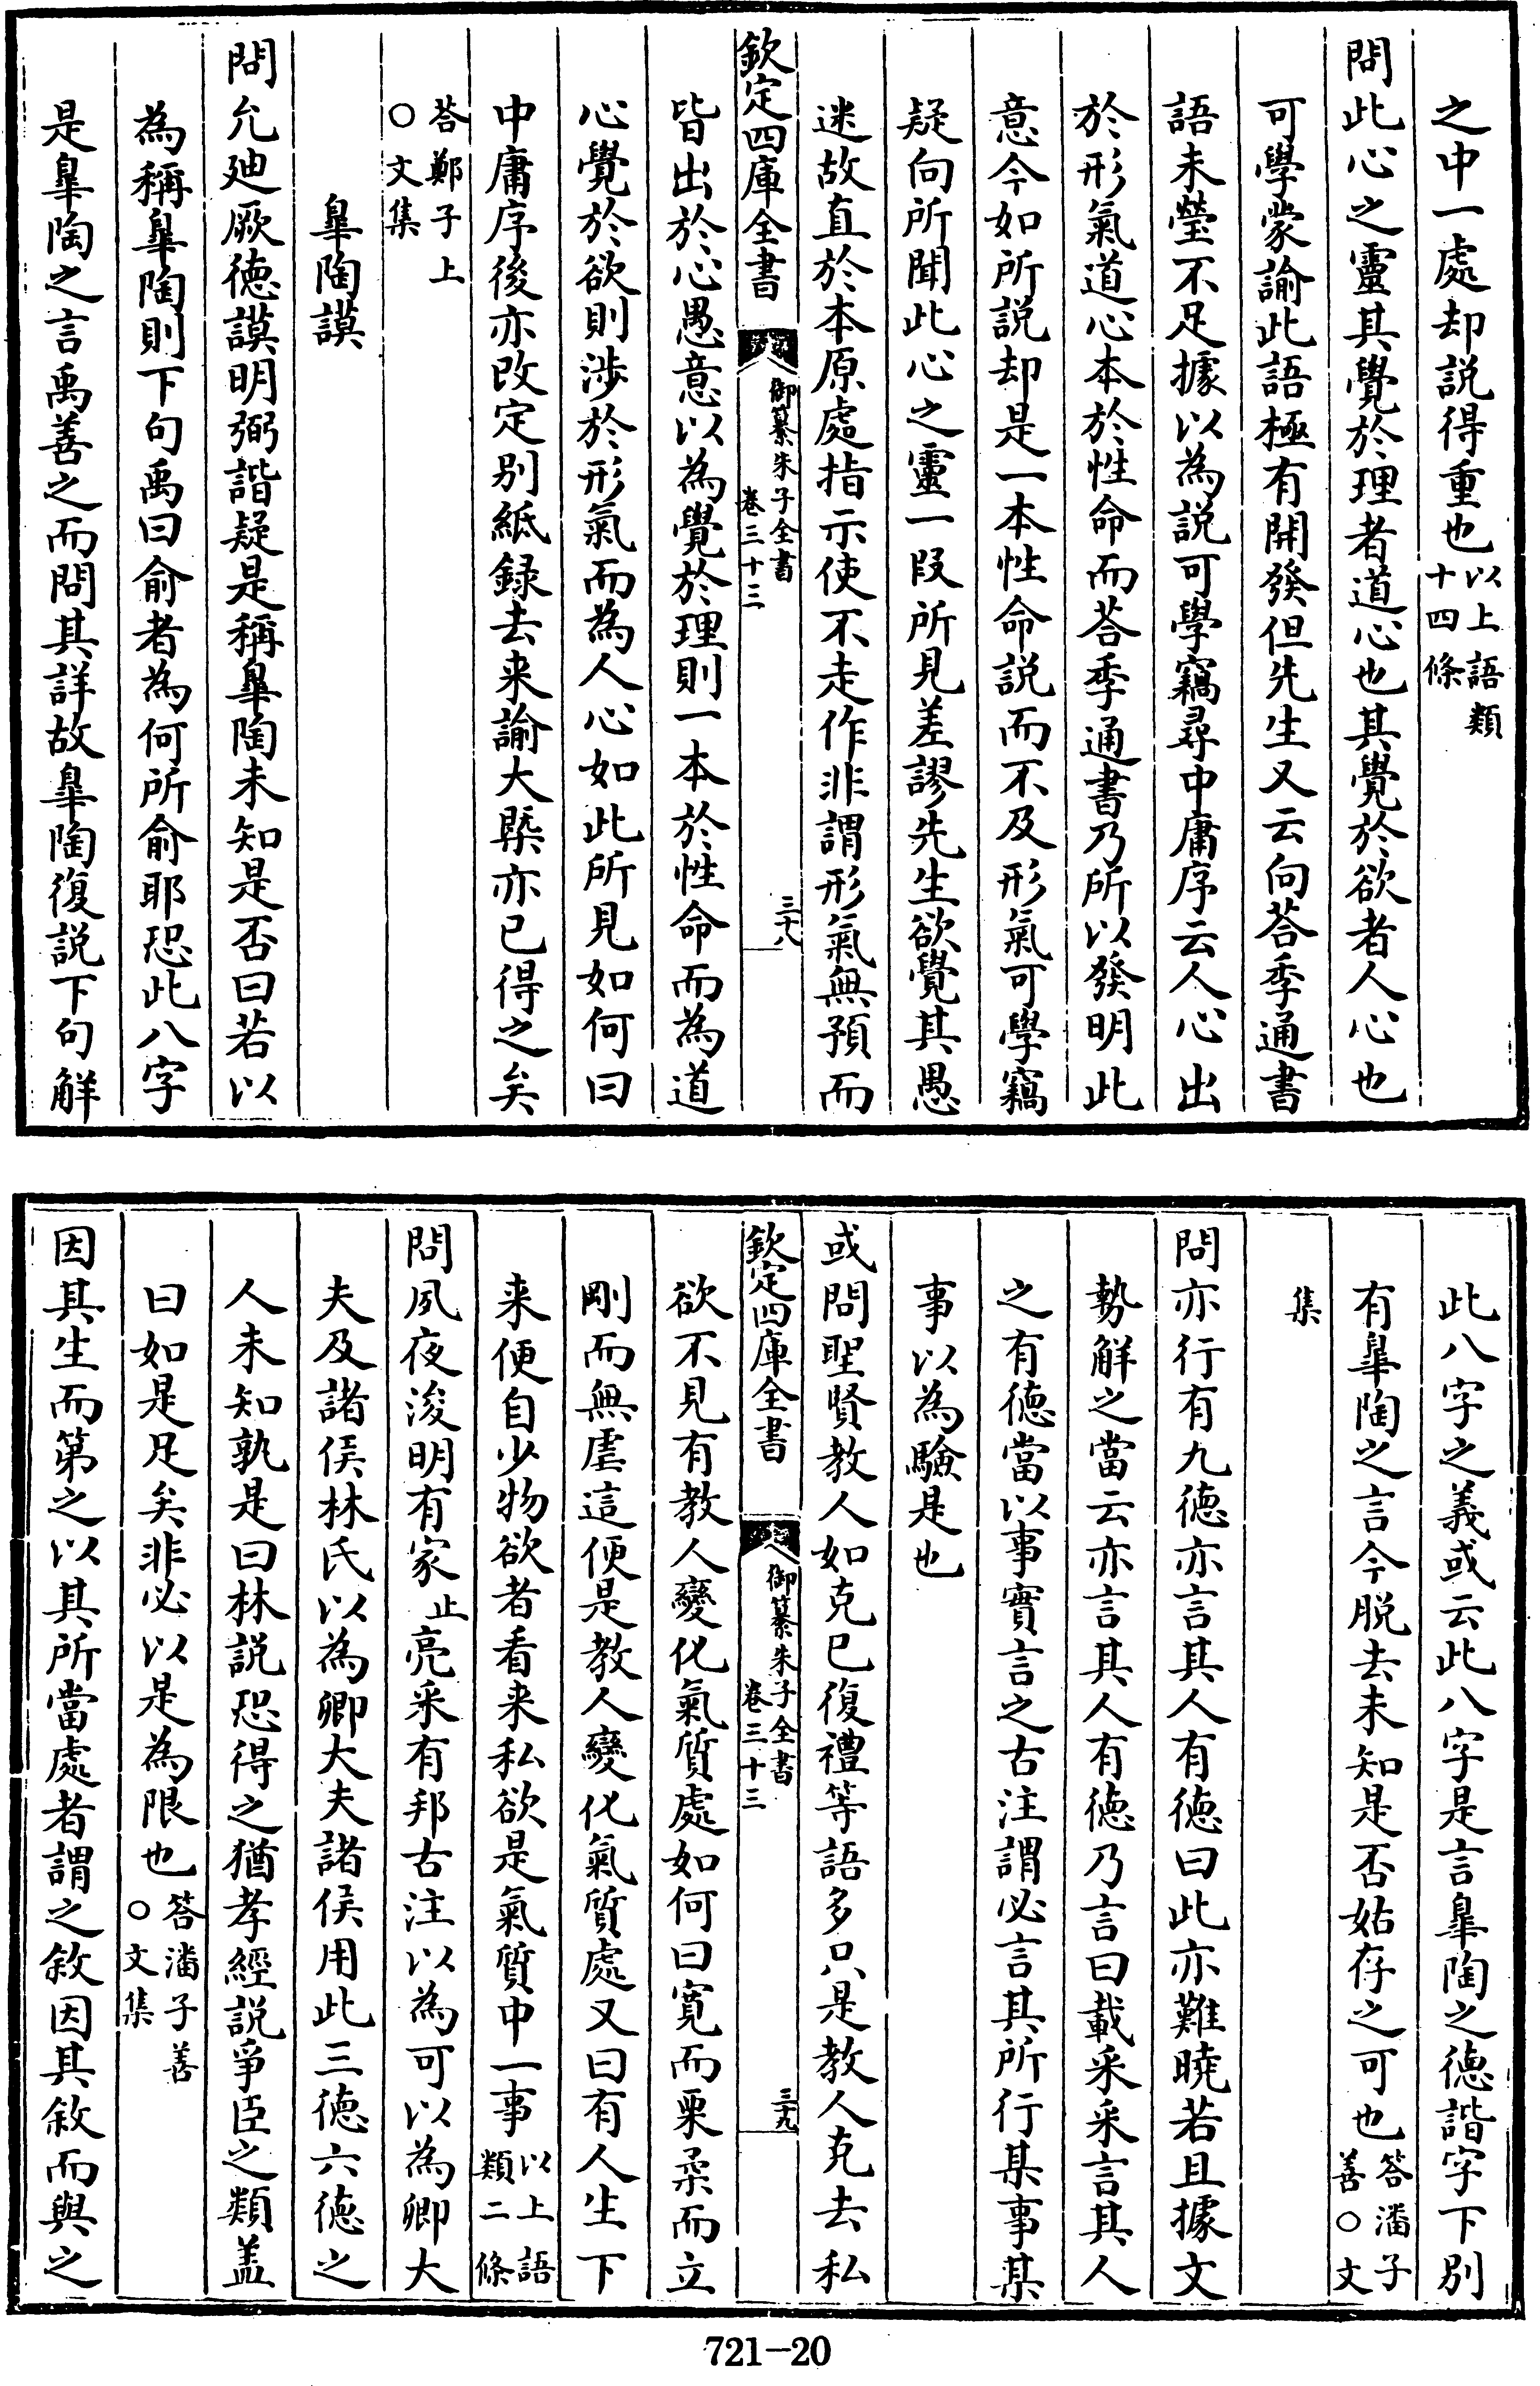 之中一處却説得重也以上語類十四條
問此心之靈其覺於理者道心也其覺於欲者人心也
可學蒙諭此語極有開發但先生又云向荅季通書
語未瑩不足據以為説可學竊尋中庸序云人心出
於形氣道心本於性命而荅季通書乃所以發明此
意今如所説却是一本性命説而不及形氣可學竊
疑向所聞此心之靈一段所見差謬先生欲覺其愚
迷故直於本原處指示使不走作非謂形氣無預而
欽定四庫全書 御纂朱子全書 卷三十三 三十八
皆出於心愚意以為覺於理則一本於性命而為道
心覺於欲則渉於形氣而為人心如此所見如何曰
中庸序後亦改定别紙録去来諭大槩亦已得之矣
荅鄭子上○文集
臯陶謨
問允廸厥德謨明弼諧疑是稱臯陶未知是否曰若以
為稱臯陶則下句禹曰俞者為何所俞耶恐此八字
是臯陶之言禹善之而問其詳故臯陶復説下句解
此八字之義或云此八字是言臯陶之德諧字下别
有臯陶之言今脱去未知是否姑存之可也答潘子善○文
集
問亦行有九德亦言其人有德曰此亦難曉若且據文
勢解之當云亦言其人有德乃言曰載采采言其人
之有德當以事實言之古注謂必言其所行某事某
事以為驗是也
或問聖賢教人如克已復禮等語多只是教人克去私
欽定四庫全書 御纂朱子全書 卷三十三 三十九
欲不見有教人變化氣質處如何曰寛而栗柔而立
剛而無虐這便是教人變化氣質處又曰有人生下
来便自少物欲者看来私欲是氣質中一事以上語類二條
問夙夜浚明有家止亮采有邦古注以為可以為卿大
夫及諸侯林氏以為卿大夫諸侯用此三德六德之
人未知孰是曰林説恐得之猶孝經説爭臣之類盖
曰如是足矣非必以是為限也答潘子善○文集
因其生而第之以其所當處者謂之敘因其敘而與之
721-20